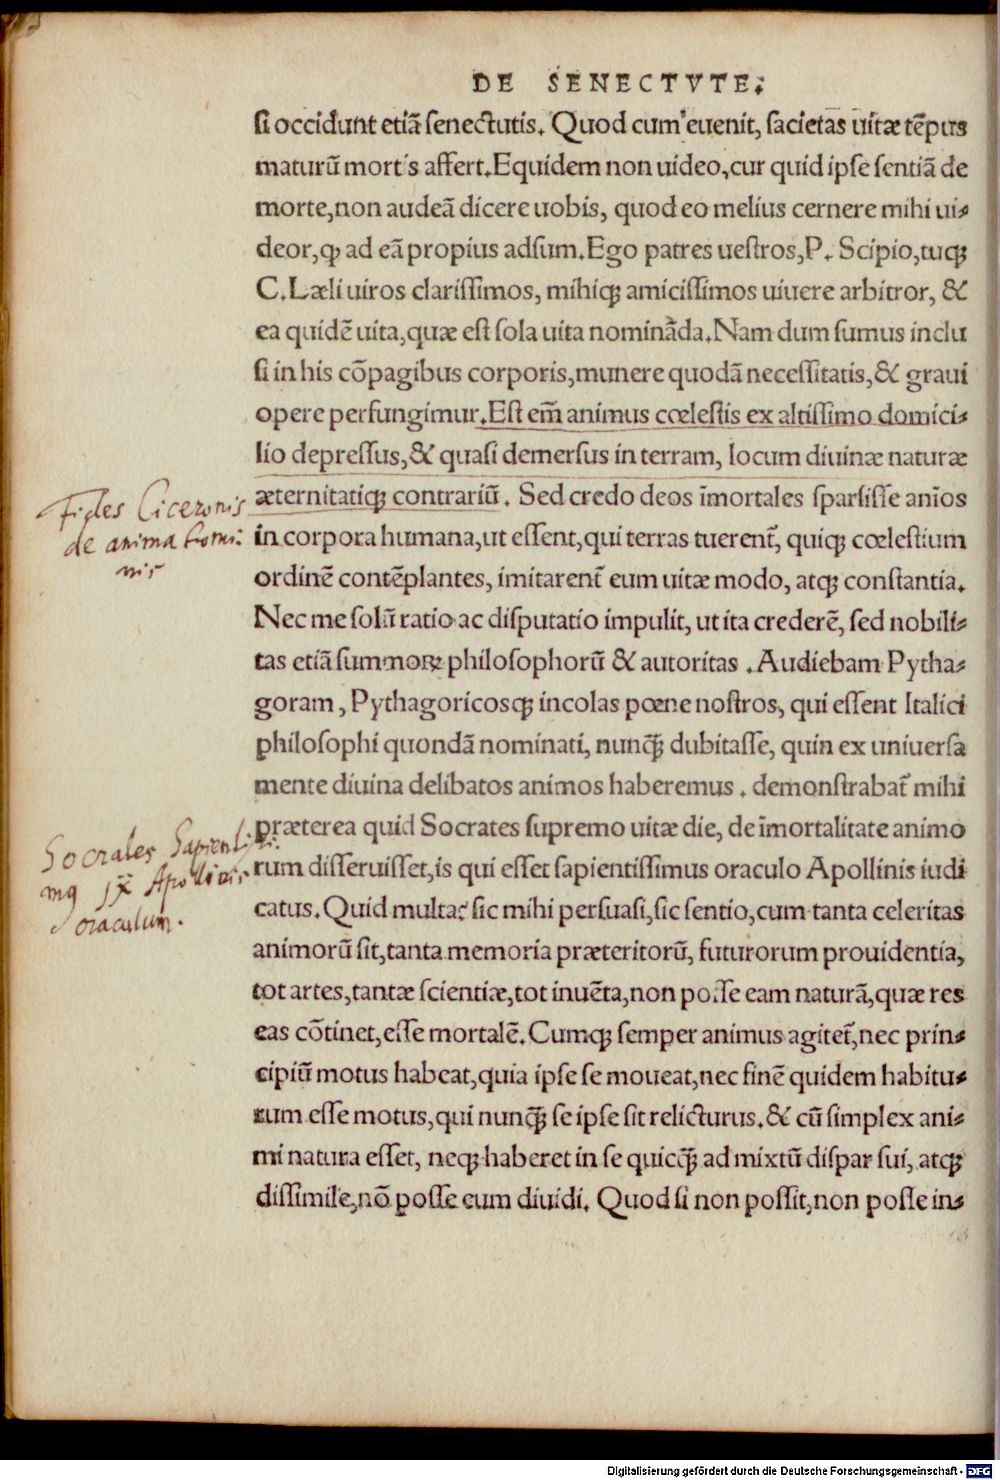 DE SENECTVTE.
si occidunt etiã senectutis. Quod cum euenit, sacietas uitæ tẽpus
maturũ mortis affert. Equidem non uideo, cur quid ipse sentiã de
morte, non audeã dicere uobis, quod eo melius cernere mihi ui-
deor, ꝙ ad eã propius adsum. Ego patres uestros, P. Scipio, tuqꝫ
C. Læli uiros clarissimos, mihiqꝫ amicissimos uiuere arbitror, &
ea quidẽ uita, quæ est sola uita nominãda. Nam dum sumus inclu
si in his cõpagibus corporis, munere quodã necessitatis, & graui
opere perfungimur. Est em̃ animus cœlestis ex altissimo domici-
lio depressus, & quasi demersus in terram, locum diuinæ naturæ
æternitatiqꝫ contrariũ. Sed credo deos ĩmortales sparsisse anĩos
Fides Ciceronis
de anima homi:
nis
in corpora humana, ut essent, qui terras tuerent̃, quiqꝫ cœlestium
ordinẽ contẽplantes, imitarent̃ eum uitæ modo, atqꝫ constantia.
Nec me solũ ratio ac disputatio impulit, ut ita crederẽ, sed nobili-
tas etiã summoꝝ philosophorũ & autoritas. Audiebam Pytha-
goram, Pythagoricosqꝫ incolas pœne nostros, qui essent Italici
philosophi quondã nominati, nunqꝫ̃ dubitasse, quin ex uniuersa
mente diuina delibatos animos haberemus. demonstrabat̃ mihi
præterea quid Socrates supremo uitæ die, de ĩmortalitate animo
rum disseruisset, is qui esset sapientissimus oraculo Apollinis iudi
Socrates Sapientissi:
Apollinis
oraculum.
catus. Quid multa? sic mihi persuasi, sic sentio, cum tanta celeritas
animorũ sit, tanta memoria præteritorũ, futurorum prouidentia,
tot artes, tantæ scientiæ, tot inuẽta, non posse eam naturã, quæ res
eas cõtinet, esse mortalẽ. Cumqꝫ semper animus agitet̃, nec prin-
cipiũ motus habeat, quia ipse se moueat, nec finẽ quidem habitu-
rum esse motus, qui nunqꝫ̃ se ipse sit relicturus. & cũ simplex ani-
mi natura esset, neqꝫ haberet in se quicqꝫ̃ admixtũ dispar sui, atqꝫ
dissimile, nõ posse eum diuidi. Quod si non possit, non posse in-
Digitalisierung gefördert durch die Deutsche Forschungsgemeinschaft - DFG